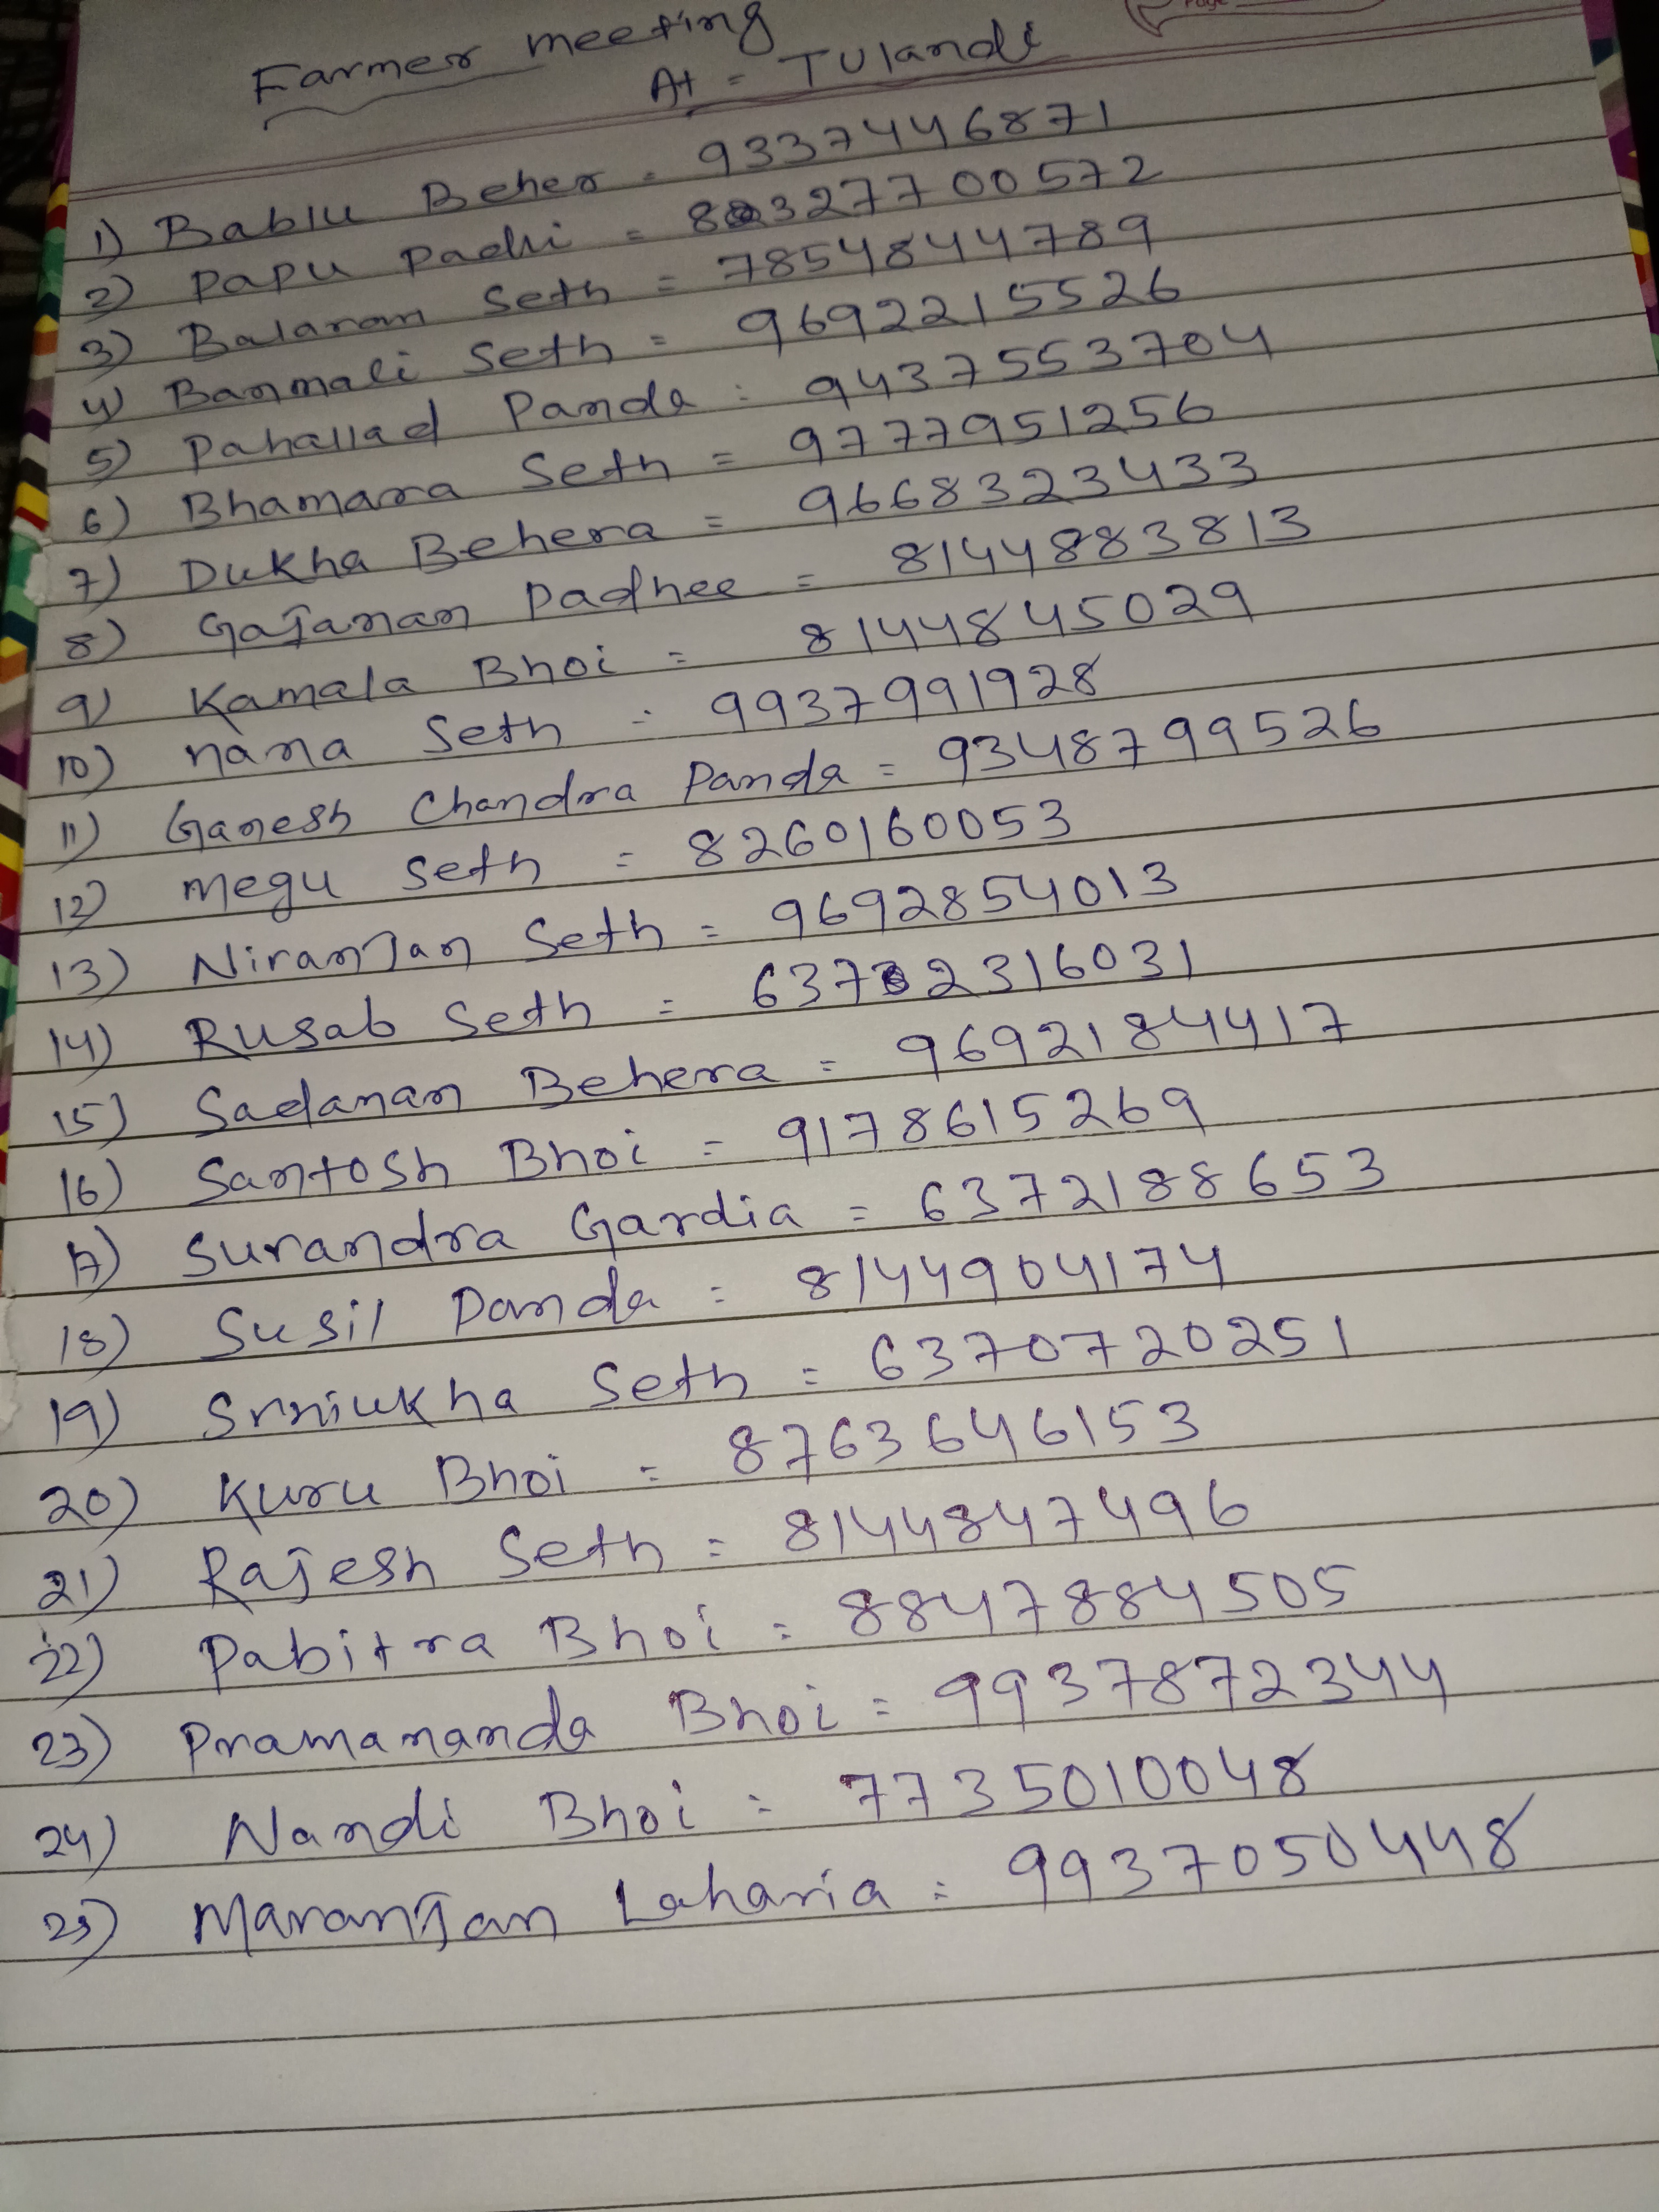 Page
Farmer meeting
At = TUlandi
1) Bablu Beher = 9337446871
2) Papu Padhi = 8327700572
3) Balaram Seth = 7854844789
4) Banmali Seth = 9692215526
5) Pahallad Panda = 9437553704
6) Bhamara Seth = 9777951256
7) Dukha Behera = 9668323433
8) Gajanan Padhee = 8144883813
9) Kamala Bhoi = 8144845029
10) nana Seth = 9937991928
11) Ganesh Chandra Panda = 9348799526
12) megu Seth = 8260160053
13) Niranjan Seth = 9692854013
14) Rusab Seth = 6372316031
15) Sadanan Behera = 9692184417
16) Santosh Bhoi = 9178615269
17) Surandra Gardia = 6372188653
18) Susil Panda = 8144904174
19) Seth = 6370720251
20) Kuru Bhoi = 8763646153
21) Rajesh Seth = 8144847496
22) Pabitra Bhoi = 8847884505
23) Pramananda Bhoi = 9937872344
24) Nandi Bhoi = 7735010048
25) Maranjan Laharia = 9937050448